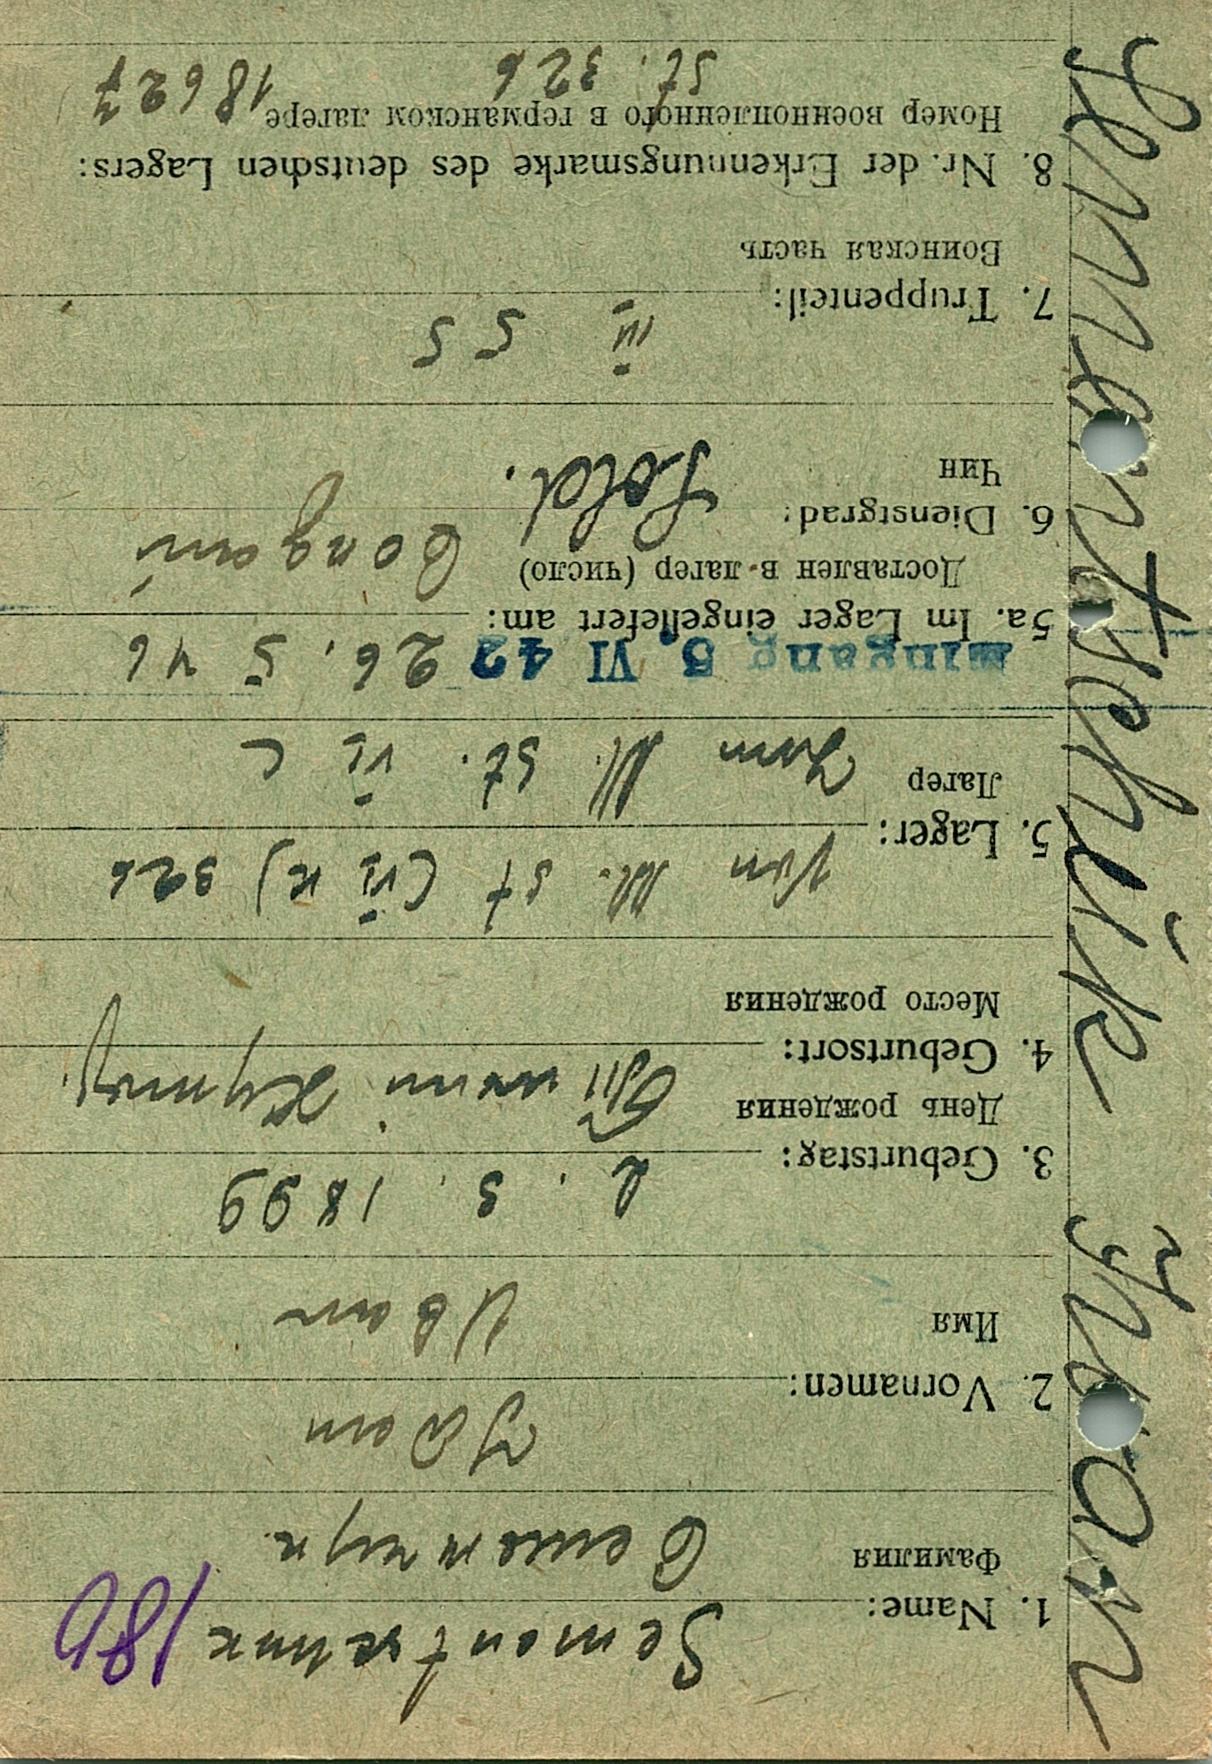 Semantschuk Iwan
186
1. Name: Semantschuk
Фамилия Семанчук
Iван
2. Vornamen:
Имя Иван
3. Geburtstag: 2. 3. 1899
День рождения
4. Geburtsort:
Место рождения
5. Lager: Von M. St (VI K) 326
Лагер Zum M. St. VI C
Eingang 5. VI 42 26. 5 46
5a. Im Lager eingeliefert am:
Доставлен в лагер (число)
6. Dienstgrad: Sold.
Чин
III 55
7. Truppenteil:
Воинская часть
8. Nr. der Erkennungsmarke des deutschen Lagers:
Номер военнопленного в германском лагере 18627
St. 326